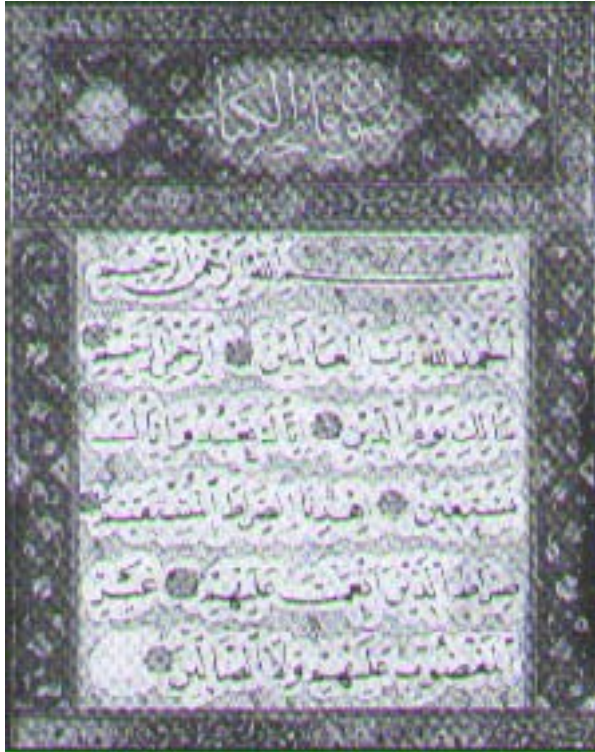 سورة فاتحة الكتاب
بسم الله الرحمن الرحيم
الحمد لله رب العالمين الرحمن الرحيم
مالك يوم الدين إياك نعبد وإياك
نستعين اهدنا الصراط المستقيم
صراط الذين أنعمت عليهم غير
المغضوب عليهم ولا الضالين